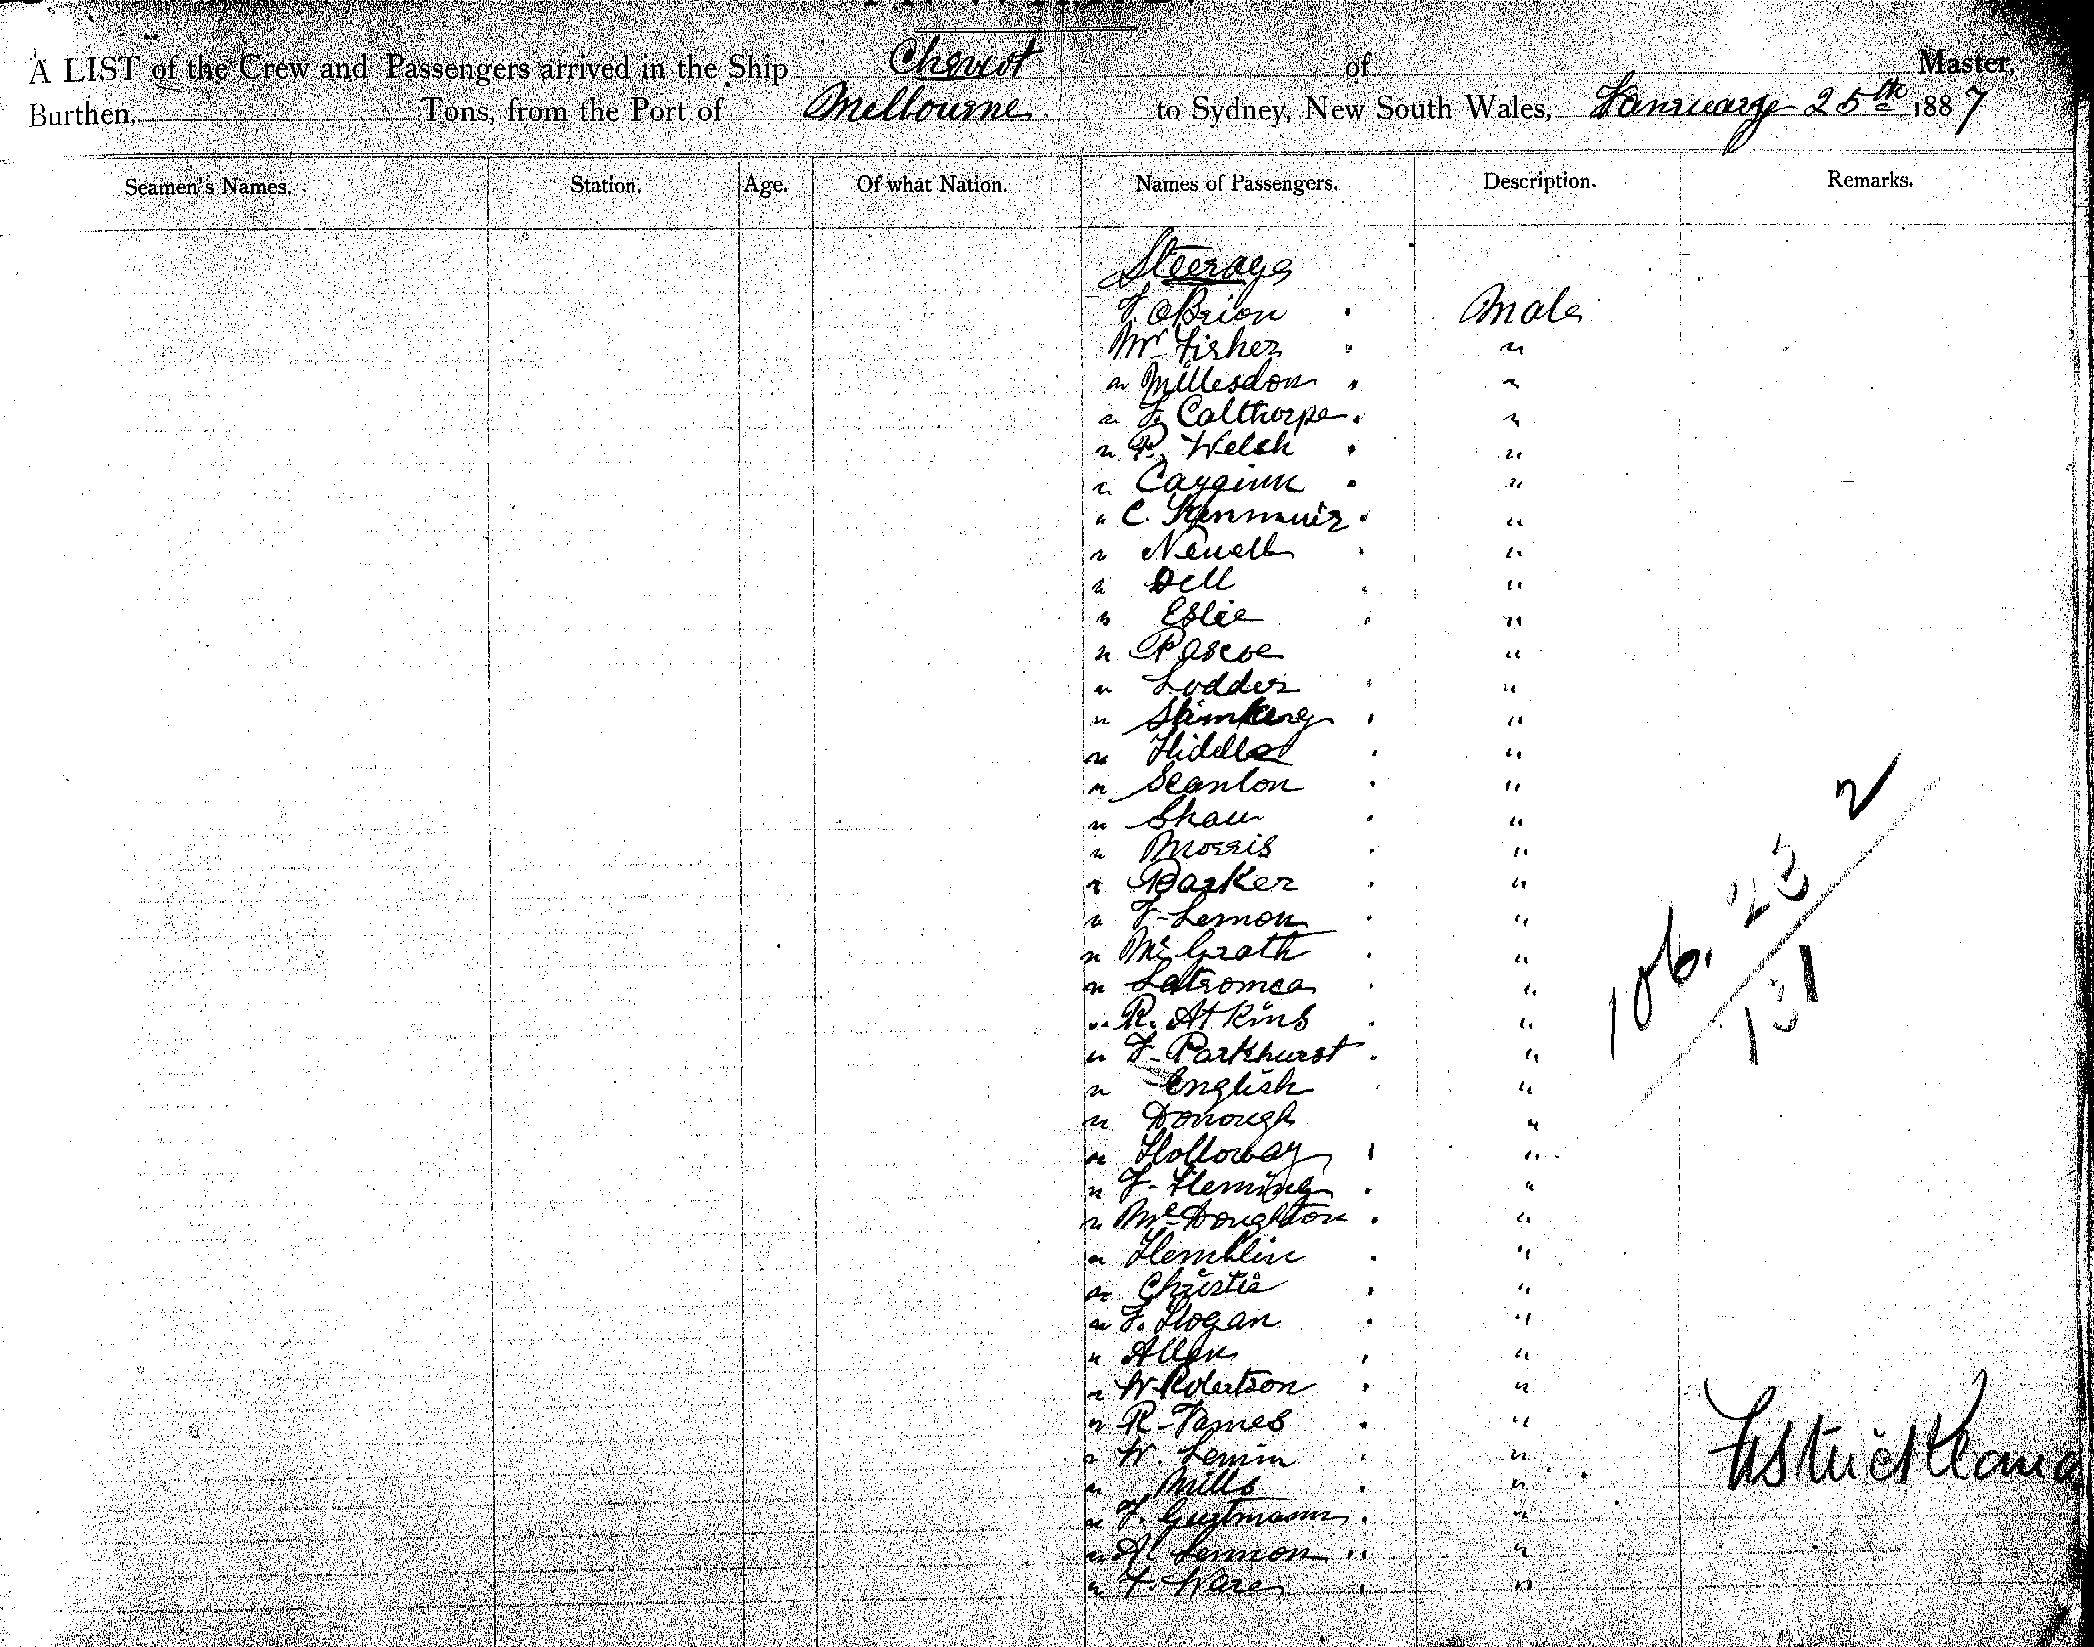 A LIST of the Crew and Passengers arrived in the Ship Cheviot of Master,
Burthen, Tons, from the Port of Melbourne to Sydney, New South Wales, January 25th 1887
Seamen's Names. Station. Age. Of what Nation. Names of Passengers. Description. Remarks.
Steerage
OBrion Male
Mr Fisher "
" Millesdon "
" Calthorpe "
" P. Welsh "
" "
" C. Kenmuir "
" Newell "
" Dell "
" Eslie "
" Pascoe "
" Lodder "
" "
" "
" Scanlon "
" Shaw "
" Morris "
" Parker "
" Lemon "
" McGrath "
" "
" R. Atkins "
" Parkhurst "
" English "
" Donough "
" Holloway "
" Fleming "
" "
" Hemblin "
" Christie "
" Hogan "
" Allen "
" W. Robertson "
" R. James "
" W. "
" Mills "
" "
" A. Lennon "
" Ware "
2
106. 23
131